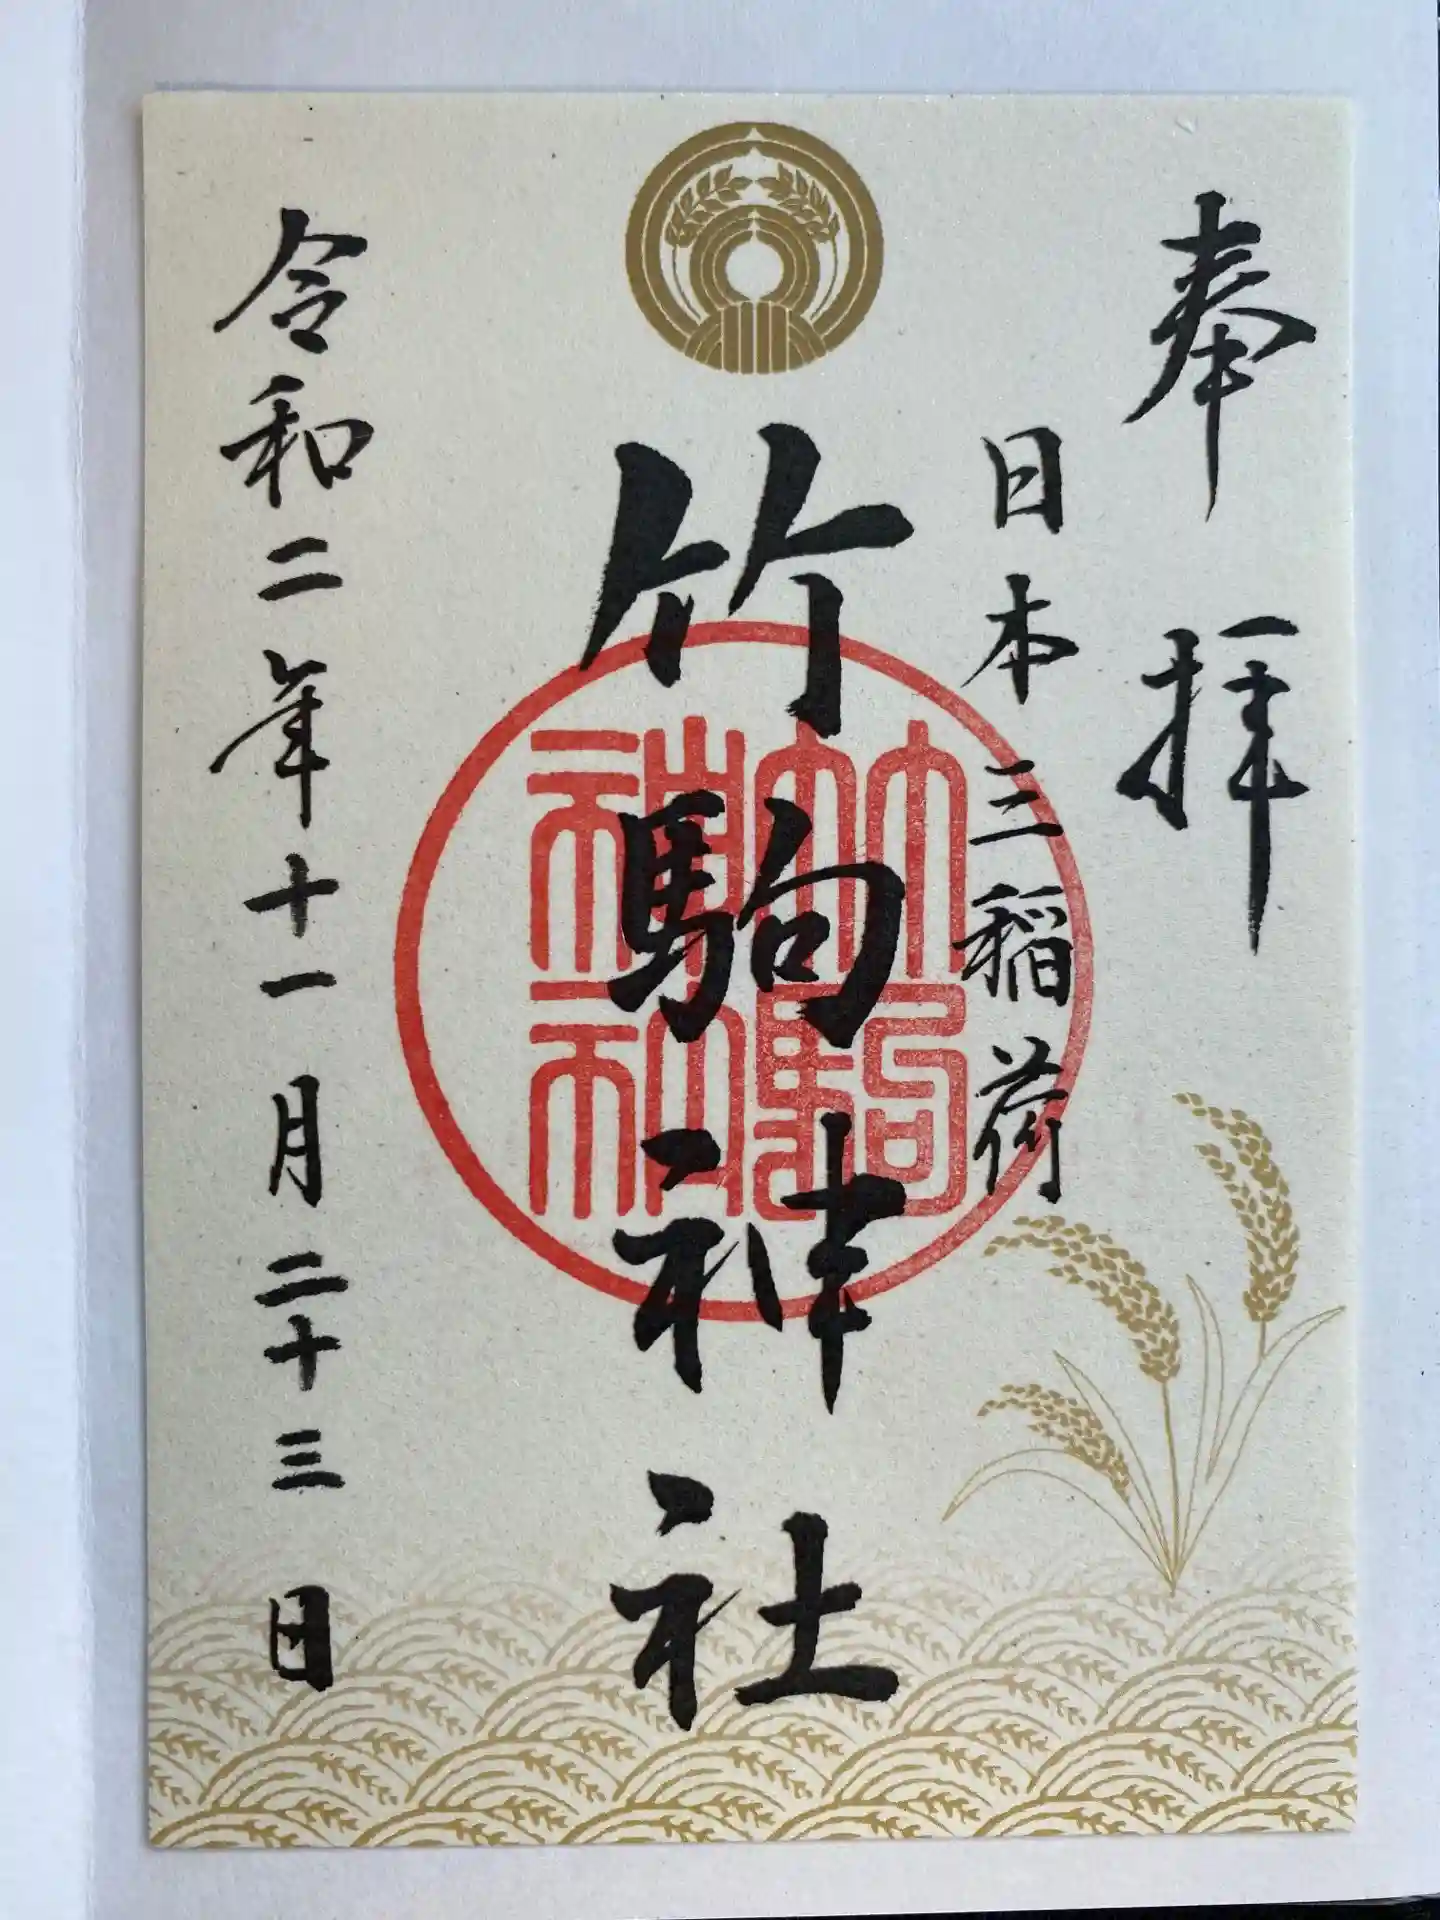 奉拝
日本三稲荷
竹駒神社
竹駒
神社
令和二年十一月二十三日